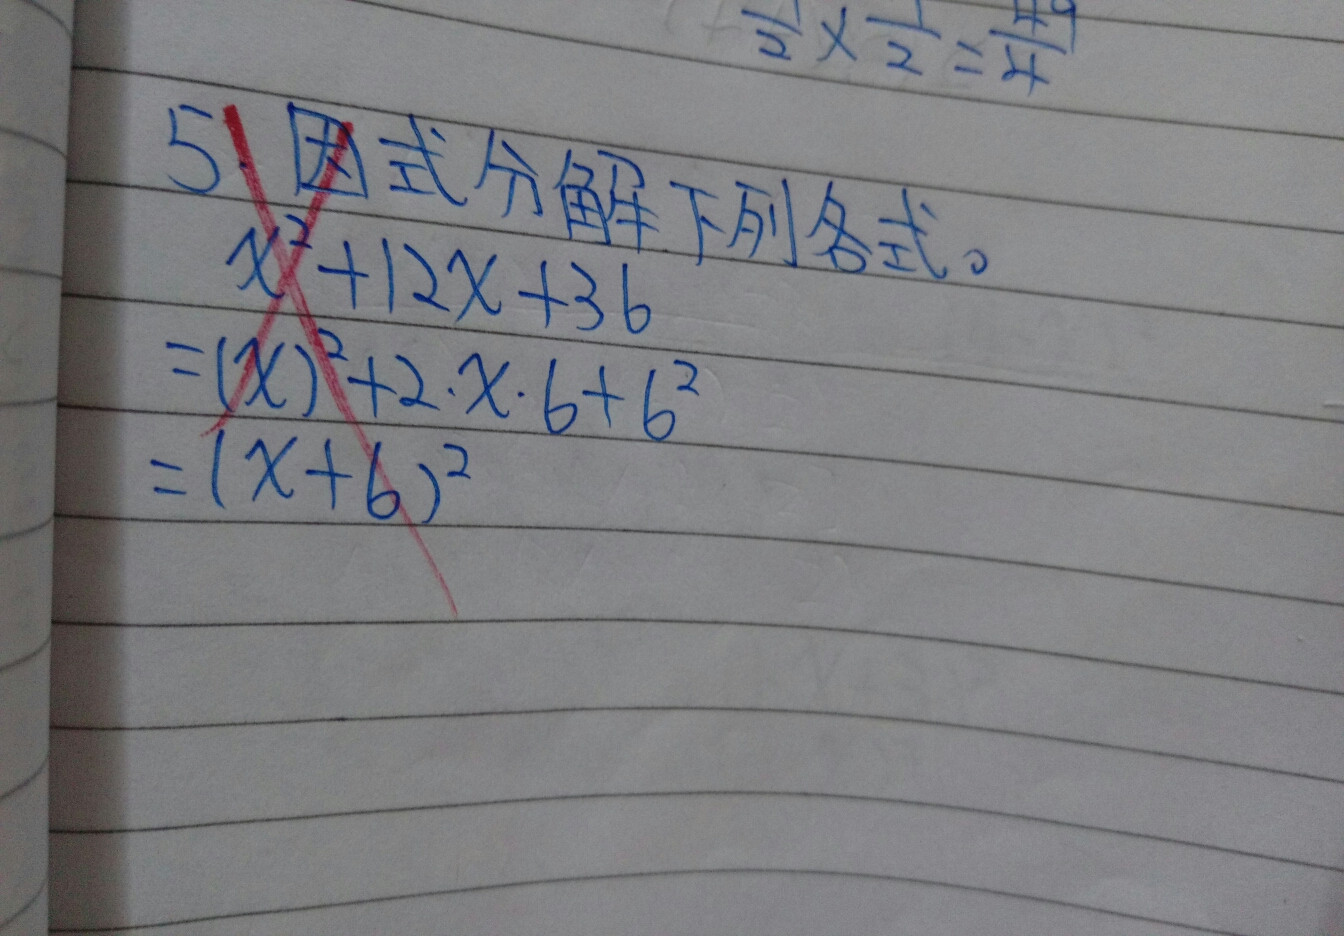 1/2 × 1/2 = 49/4
5. 因式分解下列各式。
x²+12x+36
=(x)²+2·x·6+6²
=(x+6)²